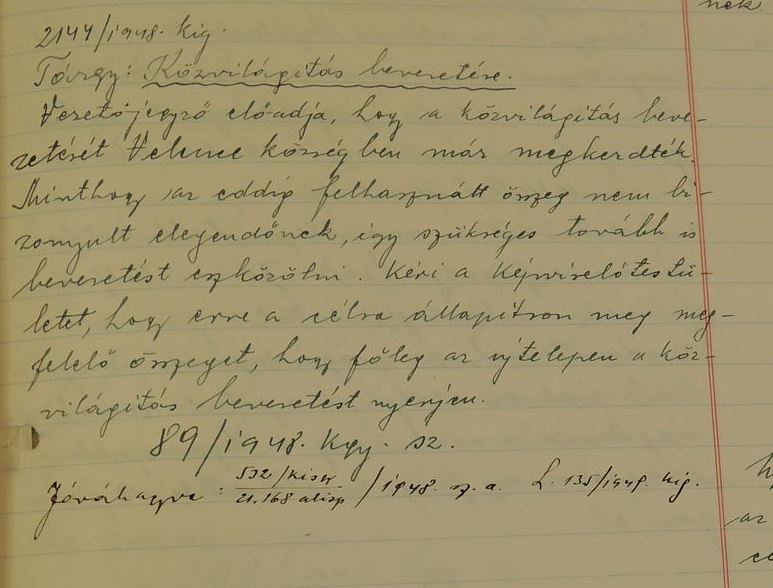 nek.
2144/1948. kig.
Tárgy: Közvilágítás bevezetése.
Vezetőjegyző előadja, hogy a közvilágítás beve-
zetését Velence községben már megkezdték.
Minthogy az eddig felhasznált összeg nem bi-
zonyult elegendőnek, így szükséges tovább is
bevezetést eszközölni. Kéri a Képviselőtestü-
letet, hogy erre a célra állapítson meg meg-
felelő összeget, hogy főleg az újtelepen a köz-
világítás bevezetést nyerjen.
89/1948. kgy. sz.
Jóváhagyva: 532/kisgy
21.168 alisp /1948. sz. a. L. 135/1949. kig.
az